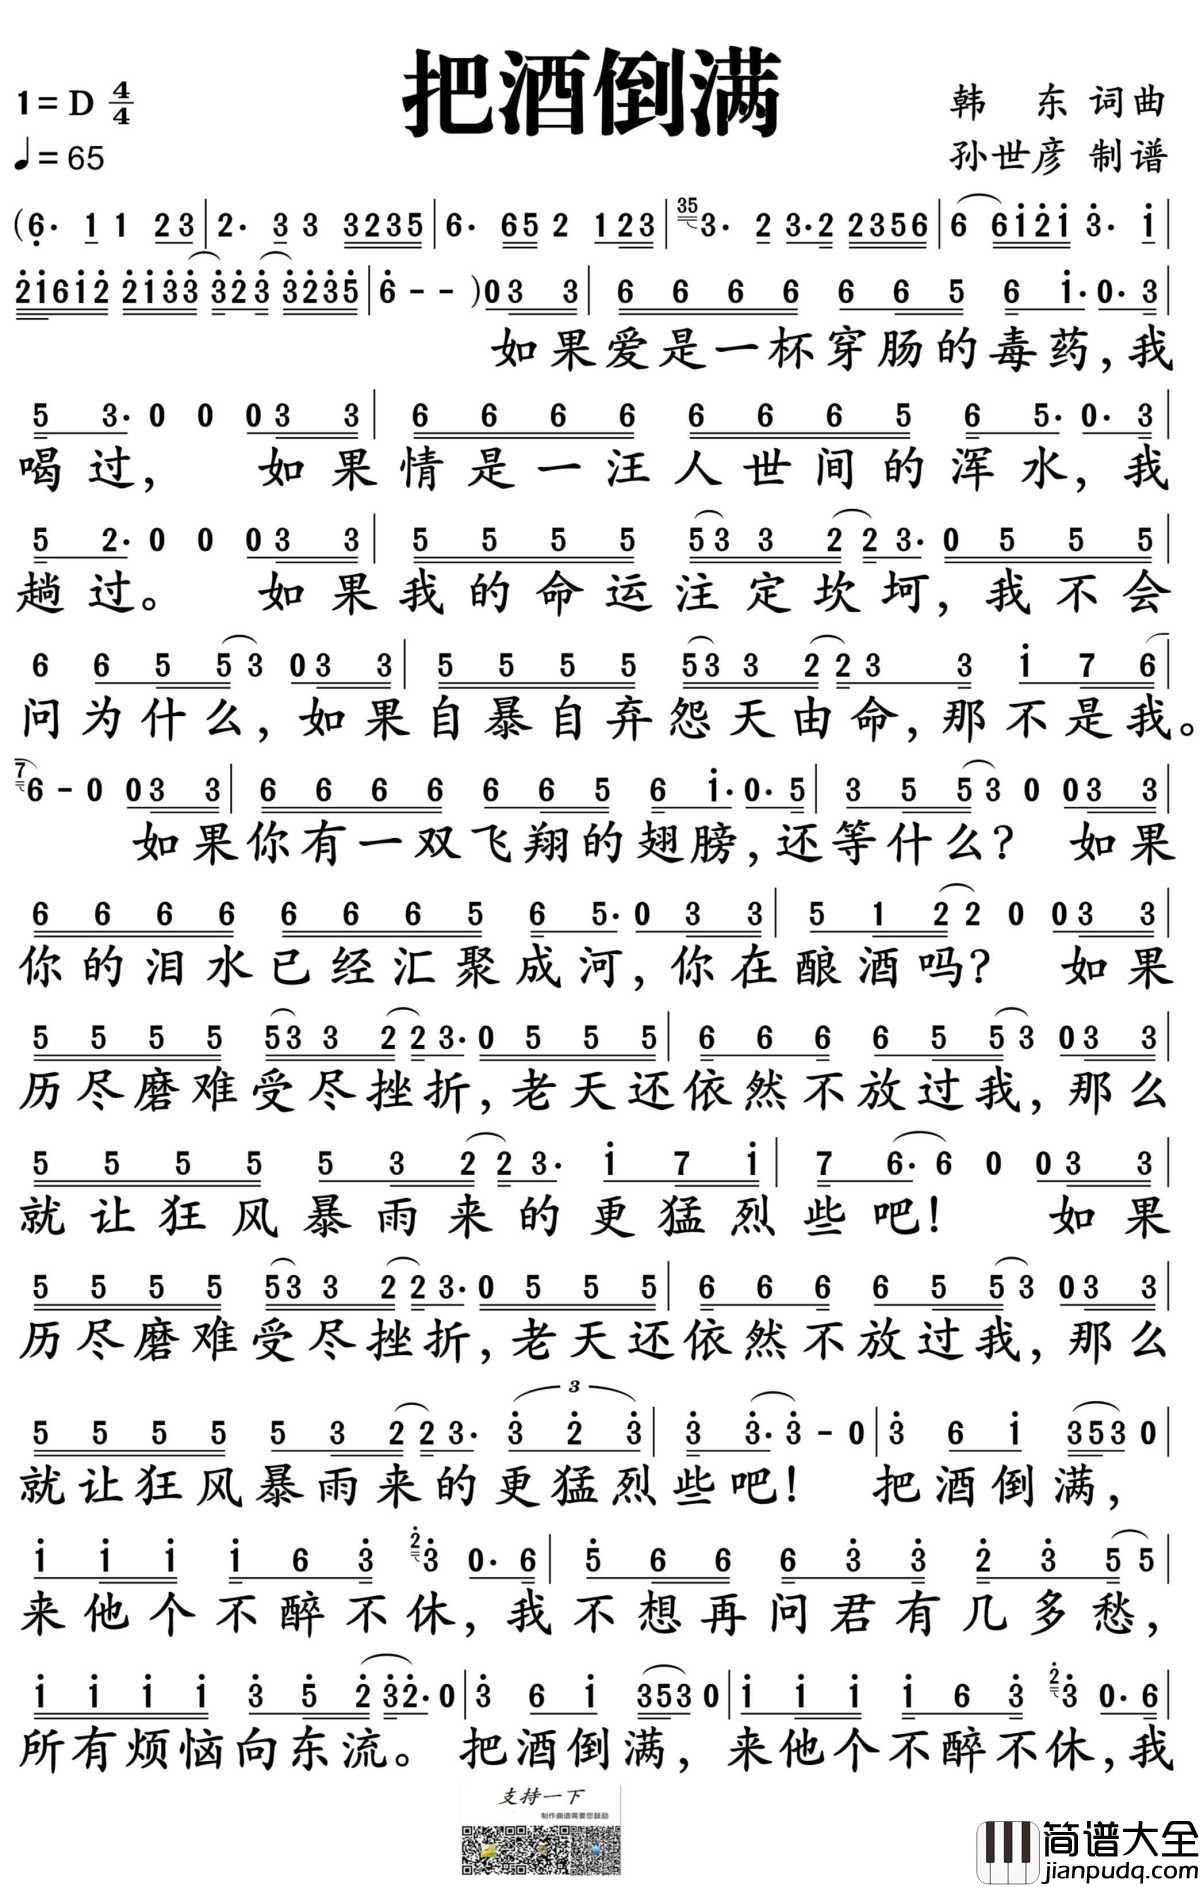 把酒倒满
1=D 4/4
♩=65
韩 东 词曲
孙世彦 制谱
(6. 1 1 2 3 | 2. 3 3 3 2 3 5 | 6. 6 5 2 1 2 3 | 3 5 3. 2 3. 2 2 3 5 6 | 6 6 1 2 1 3. 1 |
2 1 6 1 2 2 1 3 3 3 2 3 3 2 3 5 | 6 - - ) 0 3 3 | 6 6 6 6 6 6 5 6 1. 0. 3 |
如果爱是一杯穿肠的毒药,我
5 3. 0 0 0 3 3 | 6 6 6 6 6 6 6 5 6 5. 0. 3 |
喝过, 如果情是一汪人世间的浑水,我
5 2. 0 0 0 3 3 | 5 5 5 5 5 3 3 2 2 3. 0 5 5 5 |
趟过。 如果我的命运注定坎坷,我不会
6 6 5 5 3 0 3 3 | 5 5 5 5 5 3 3 2 2 3 3 1 7 6 |
问为什么,如果自暴自弃怨天由命,那不是我。
7 6 - 0 0 3 3 | 6 6 6 6 6 6 5 6 1. 0. 5 | 3 5 5 3 0 0 3 3 |
如果你有一双飞翔的翅膀,还等什么? 如果
6 6 6 6 6 6 6 5 6 5. 0 3 3 | 5 1 2 2 0 0 3 3 |
你的泪水已经汇聚成河,你在酿酒吗? 如果
5 5 5 5 5 3 3 2 2 3. 0 5 5 5 | 6 6 6 6 5 5 3 0 3 3 |
历尽磨难受尽挫折,老天还依然不放过我,那么
5 5 5 5 5 3 2 2 3. 1 7 1 | 7 6. 6 0 0 3 3 |
就让狂风暴雨来的更猛烈些吧! 如果
5 5 5 5 5 3 3 2 2 3. 0 5 5 5 | 6 6 6 6 5 5 3 0 3 3 |
历尽磨难受尽挫折,老天还依然不放过我,那么
5 5 5 5 5 3 2 2 3. 3 2 3 | 3 3. 3 - 0 | 3 6 1 3 5 3 0 |
3
就让狂风暴雨来的更猛烈些吧! 把酒倒满,
1 1 1 1 6 3 2 3 0. 6 | 5 6 6 6 3 3 2 3 5 5 |
来他个不醉不休,我不想再问君有几多愁,
1 1 1 1 3 5 2 3 2. 0 | 3 6 1 3 5 3 0 | 1 1 1 1 6 3 2 3 0. 6 |
所有烦恼向东流。 把酒倒满,来他个不醉不休,我
支持一下
制作曲谱需要您鼓励
简谱大全
jianpudq.com